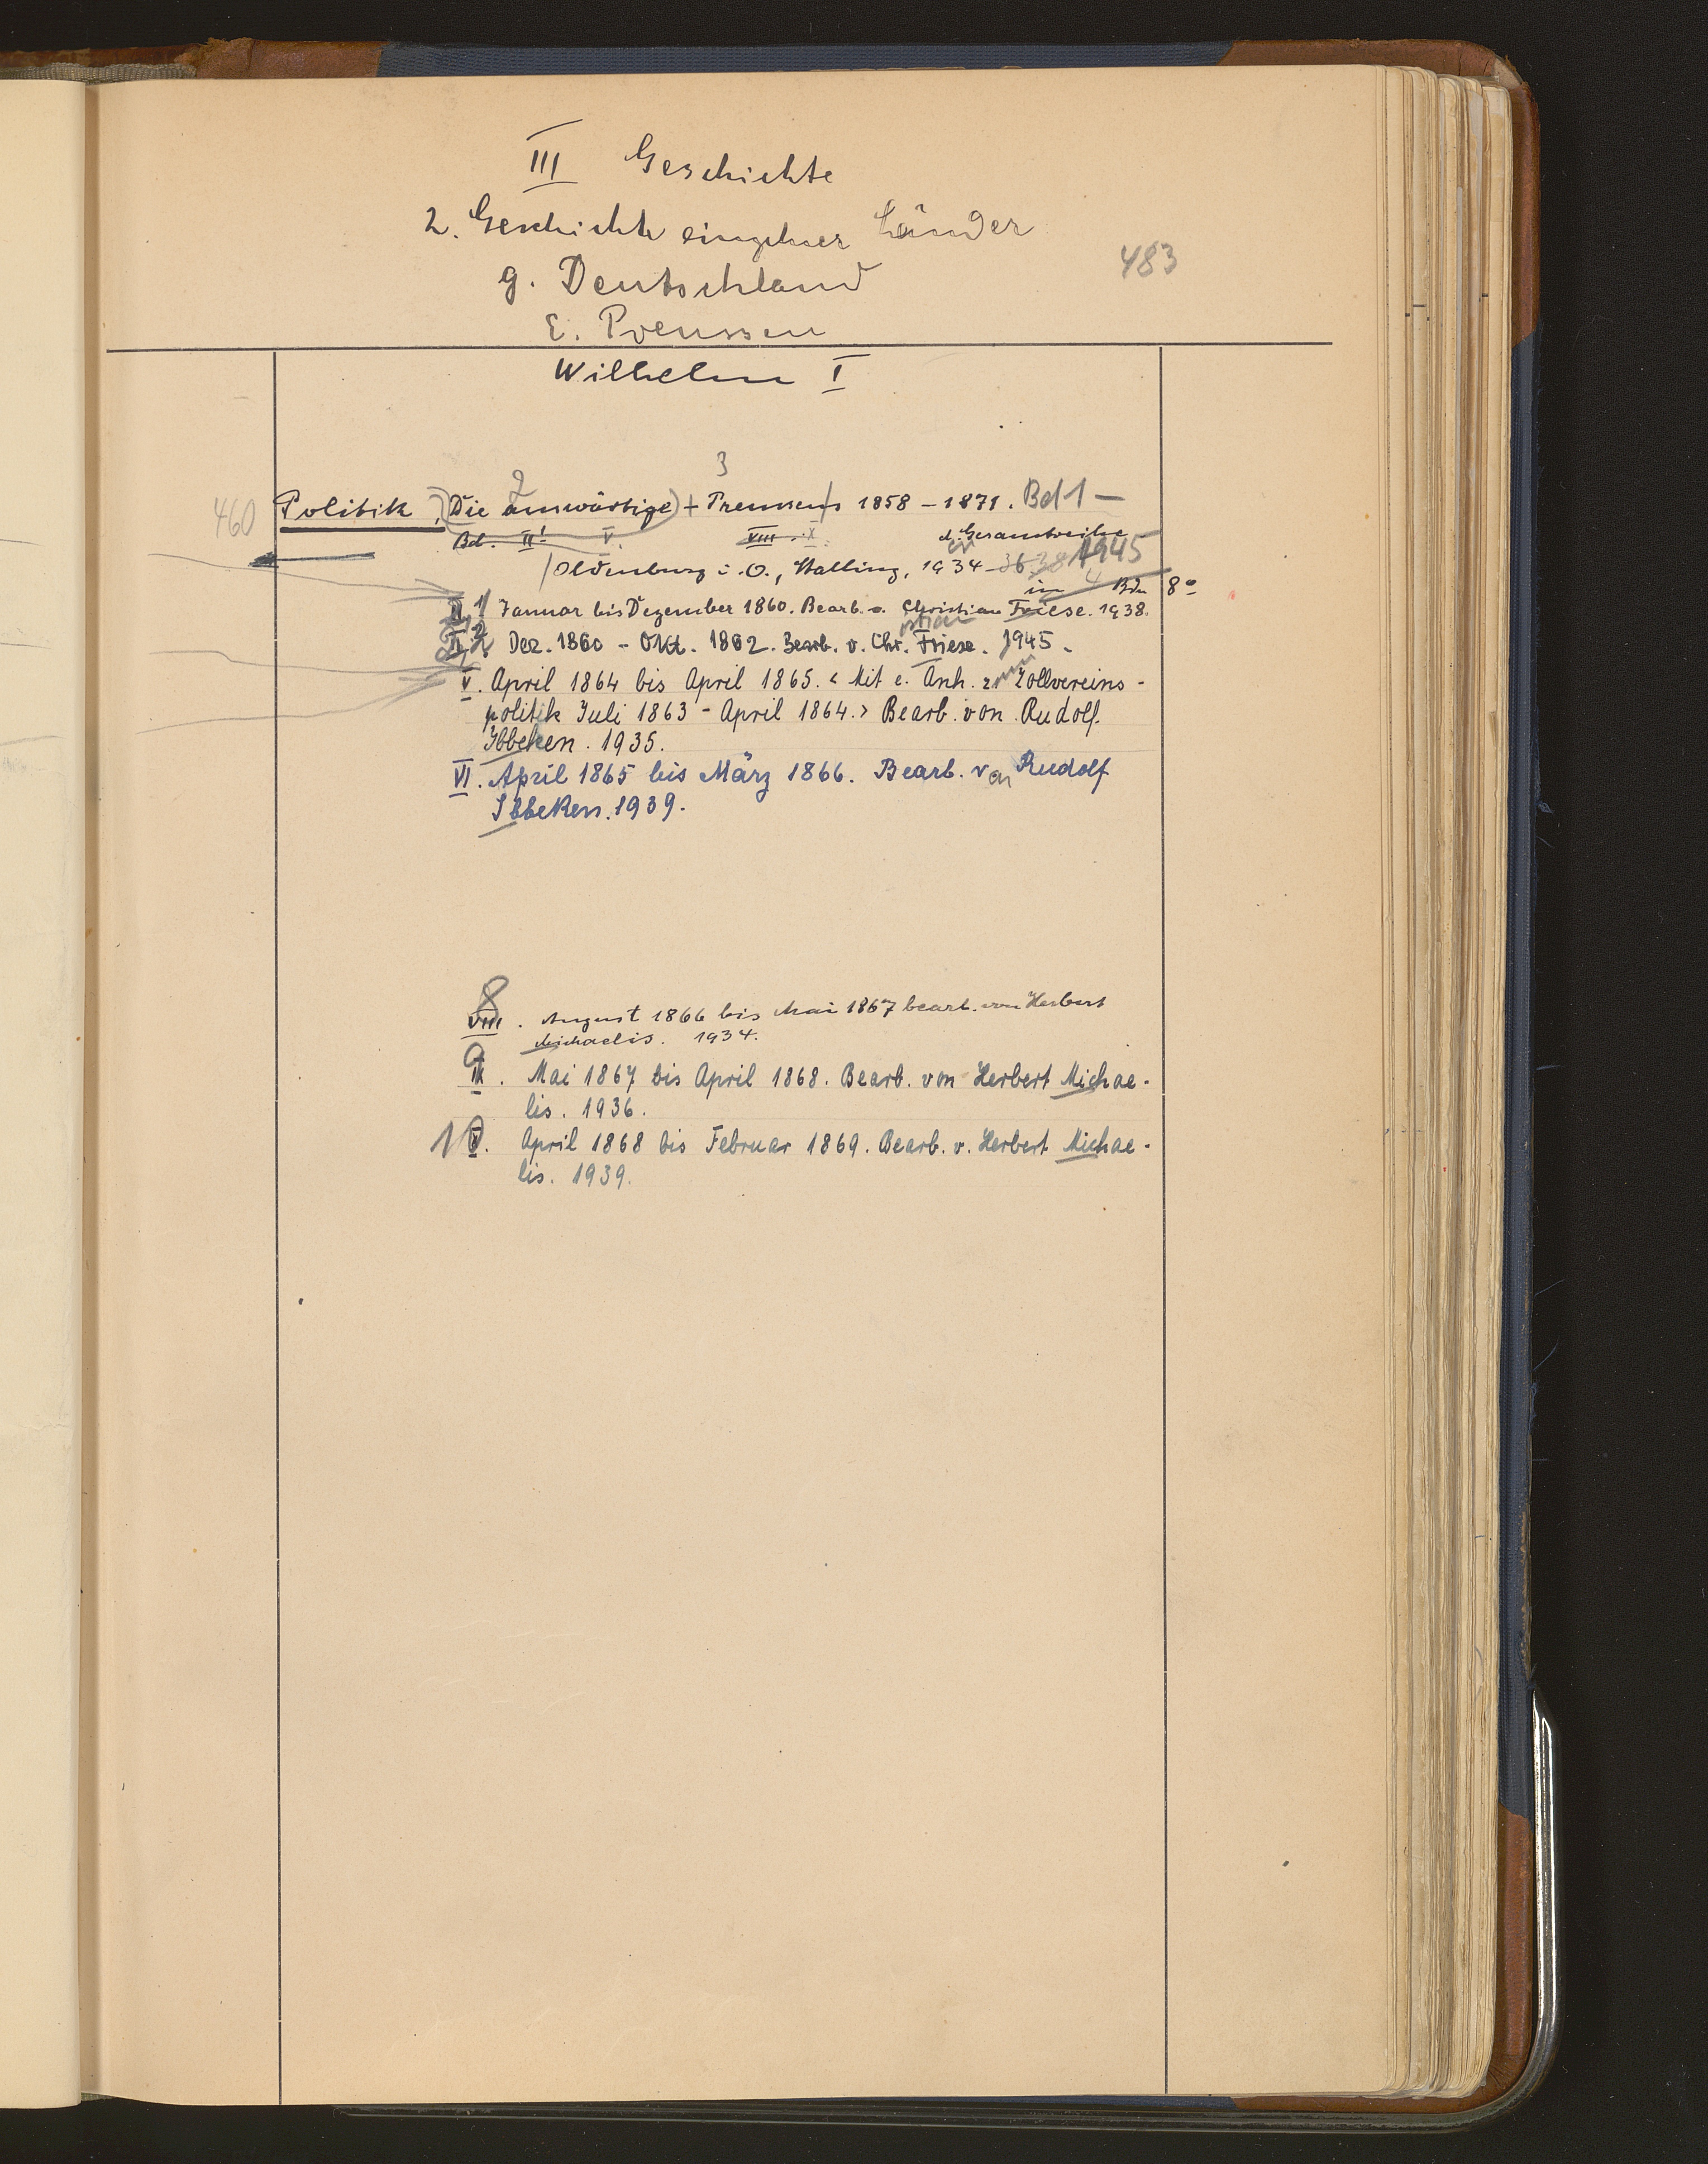 III Geschichte
2. Geschichte einzelner Länder
g. Deutschland
483
E. Preussen
Wilhelm I
2 3
460 Politik, (Die auswärtige) + Preussens 1858 – 1871. Bd 1 –
Bd. II¹ V. VIII. X. d. Gesamtreihe
Oldenburg i. O., Stalling, 1934 – 36 38 1945
in 4 Bdn 8°
II,1 Januar bis Dezember 1860. Bearb. v. Christian Friese. 1938.
II,2 Dez. 1860 – Okt. 1862. Bearb. v. Chr. Friese. 1945.
V. April 1864 bis April 1865. < Mit e. Anh. zur Zollvereins-
politik Juli 1863 – April 1864. > Bearb. von Rudolf
Ibbeken. 1935.
VI. April 1865 bis März 1866. Bearb. von Rudolf
Ibbeken. 1939.
8
VIII. August 1866 bis Mai 1867 bearb. von Herbert
Michaelis. 1934.
9
IX. Mai 1867 bis April 1868. Bearb. von Herbert Michae-
lis. 1936.
10 X. April 1868 bis Februar 1869. Bearb. v. Herbert Michae-
lis. 1939.